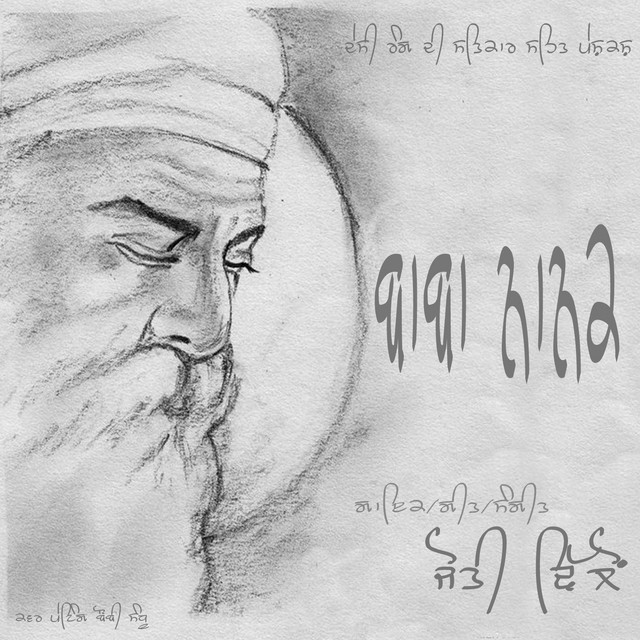 ਦੇਸੀ ਰੰਗ ਦੀ ਸਤਿਕਾਰ ਸਹਿਤ ਪੇਸ਼ਕਸ਼
ਬਾਬਾ ਨਾਨਕ
ਗਾਇਕ/ਗੀਤ/ਸੰਗੀਤ
ਜੋਤੀ ਢਿੱਲੋਂ
ਕਵਰ ਪੇਂਟਿੰਗ ਬੌਬੀ ਸੰਧੂ